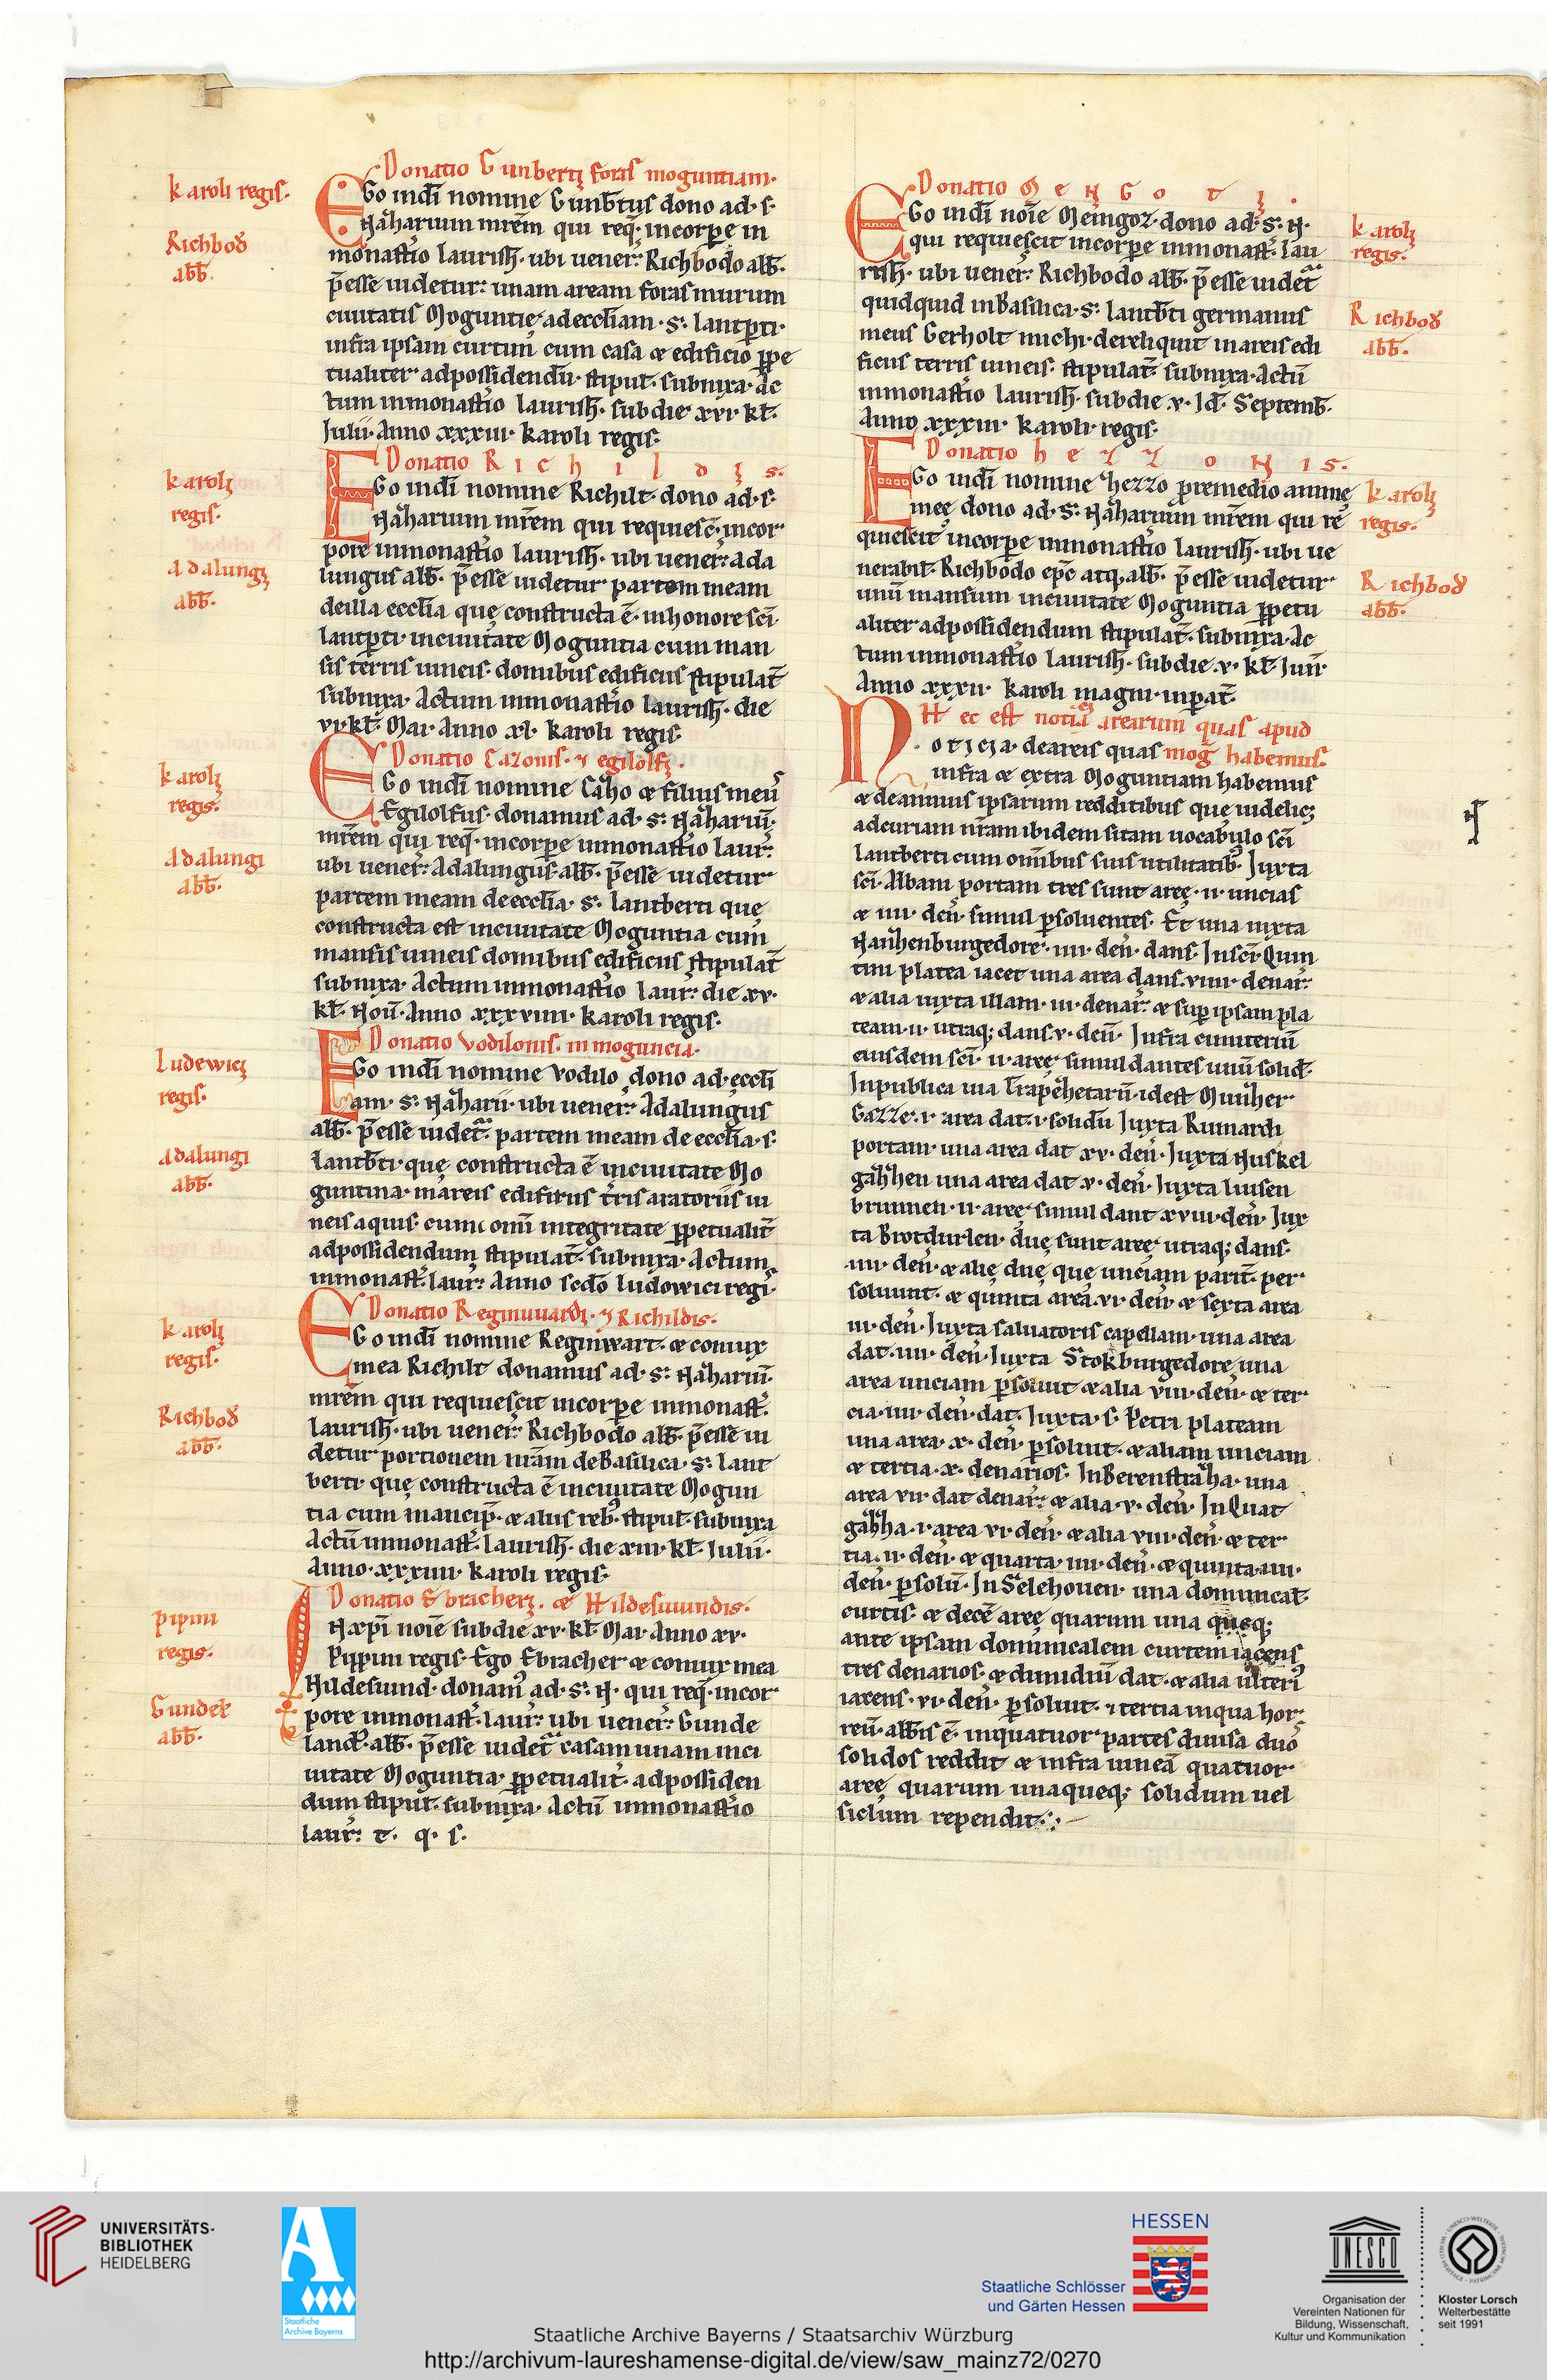 Donatio Gunberti foras moguntiam.
karoli regis.
Ego in dei nomine Gunb̄tus dono ad .s.
Nazharium mr̄em qui req̄. in corp̱e in
Richbod
abb̄.
monast̄io laurish̄. ubi uener̄. Richbodo abb̄.
p̄esse uidetur. unam aream foras murum
ciuitatis Moguntie ad eccl̄iam .s. lantp̱ti.
infra ipsam curtim cum casa et edificio p̱pe
tualiter ad possidendū. stipul̄. subnixa. Ac
tum in monast̄io laurish̄. sub die xvi. kl̄.
Julii. Anno xxxiii. karoli regis.
Donatio Richildis.
karoli
regis.
Ego in dei nomine Richilt. dono ad .s.
Nazharium mr̄em qui requiesc̄. in cor
pore in monast̄io laurish̄. ubi uener̄. ada
Adalungi
abb̄.
lungus abb̄. p̄esse uidetur partem meam
de illa eccl̄ia que constructa ē. in honore sc̄i
lantp̱ti. in ciuitate Moguntia cum man
sis terris uineis. domibus edificiis stipulat̄
subnixa. Actum in monast̄io laurish̄. die
vi. kl̄. Mar. Anno xl. karoli regis.
Donatio Cazonis. et egilolfi.
karoli
regis.
Ego in dei nomine Cazho et filius meus
Egilolfus. donamus ad .s. Nazhariū.
mr̄em qui req̄. in corp̱e in monast̄io laur̄.
Adalungi
abb̄.
ubi uener̄. Adalungus abb̄. p̄esse uidetur
partem meam de eccl̄ia .s. lantberti que
constructa est in ciuitate Moguntia cum
mansis uineis domibus edificiis stipulat̄
subnixa. Actum in monast̄io laur̄. die xv.
kl̄. Nou̅. Anno xxxviiii. karoli regis.
Donatio Vodilonis. in moguncia.
Ludewici
regis.
Ego in dei nomine Vodilo dono ad eccl̄i
am .s. Nazharii. ubi uener̄. Adalungus
abb̄. p̄esse uidet̄. partem meam de eccl̄ia .s.
Adalungi
abb̄.
lantb̄ti. que constructa ē in ciuitate Mo
guntina. in areis edificiis t̄ris aratoriis ui
neis aquis. cum om̄i integritate p̱petualit̄
ad possidendum stipulat̄. subnixa. Actum
in monast̄. laur̄. Anno sc̄do ludowici regis.
Donatio Reginuuardi. et Richildis.
karoli
regis.
Ego in dei nomine Reginwart. et coniux
mea Richilt donamus ad .s. Nazhariū.
mr̄em qui requiescit in corp̱e in monast̄.
Richbod
abb̄.
Laurish̄. ubi uener̄. Richbodo abb̄. p̄esse ui
detur portionem nr̄am de Basilica .s. lant
berti. que constructa ē in ciuitate Mogun
tia cum mancip̄. et aliis reb⁹. stipul̄. subnixa
Actū in monast̄. laurish̄. die xiii. kl̄. Julii.
Anno. xxxiiii. karoli regis.
Donatio Ebracheri. et Hildesuundis.
pipini
regis.
In xp̄i noīe sub die xv. kl̄. Mar. Anno xv.
Pippini regis. Ego Ebracher et coniux mea
Hildesuind. donam⁹ ad .s. N. qui req̄. in cor
Gundel̄
abb̄.
pore in monast̄. laur̄. ubi uener̄. Gunde
land⁹. abb̄. p̄esse uidet̄ casam unam in ci
uitate Moguntia. p̱petualit̄. ad possiden
dum stipul̄. subnixa. Actū in monast̄io
laur̄. t. q. s.
Donatio Mengoti.
karoli
regis.
Ego in dei noīe Meingoz. dono ad .s. N.
qui requiescit in corp̱e in monast̄. lau
rish̄. ubi uener̄. Richbodo abb̄. p̄esse uidet̄
Richbod
abb̄.
quidquid in Basilica .s. lantb̄ti germanus
meus Gerholt michi. dereliquit in areis edi
ficiis terris uineis. stipulat̄. subnixa. Actū
in monast̄io laurish̄. sub die .v. Id̄. Septemb̄.
Anno xxxiii. karoli. regis.
Donatio hezzonis.
karoli
regis.
Ego in dei nomine hezzo p̱ remedio anime
mee dono ad .s. Nazharium mr̄em qui re
quiescit in corp̱e in monast̄io laurish̄. ubi ue
nerabil̄. Richbodo ep̄c atq; abb̄. p̄esse uidetur
Richbod
abb̄.
unū mansum in ciuitate Moguntia p̱petu
aliter ad possidendum stipulat̄. subnixa. Ac
tum in monast̄io laurish̄. sub die .v. kl̄. Jun̄.
Anno xxxii. karoli magni. inp̱at̄.
Hec est noticia arearum quas apud
mog̅ habemus.
Noticia. de areis quas
infra et extra Moguntiam habemus
et de annuis ipsarum redditibus que uidelic;
ad curiam nr̄am ibidem sitam uocabulo sc̄i
lantberti cum om̄ibus suis utilitatib⁹. Juxta
sc̄i. Albani portam tres sunt aree. ii. uncias
et iiii. den̄. simul p̱soluentes. Et una iuxta
Hazhenburgedore. iiii. den̄. dans. In sc̄i Quin
tini platea iacet una area dans. viiii. denar̄.
et alia iuxta illam. iii. denar̄. et sup̱ ipsam pla
team. ii. utraq; dans .v. den̄. Infra cimiteriū
eiusdem sc̄i. ii. aree simul dantes unū solid̄.
In publica uia Trapezhetarū. id est Munizher
Gazze. i. area dat. i. solidū Juxta Ruinardi
portam. una area dat xv. den̄. Juxta Huskel
gazhen una area dat .v. den̄. Juxta liusen
brunnen. ii. aree simul dant xviii. den̄. Jux
ta Brotdurlen. due sunt aree utraq; dans.
iiii. den̄. et alie due que unciam parit̄. per
soluunt. et quinta area. vi. den̄. et sexta area
iii. den̄. Juxta saluatoris capellam. una area
dat. iiii. den̄. Juxta Stokburgedore una
area unciam p̱soluit et alia viii. den̄. et ter
cia. iiii. den̄. dat. Juxta .s. Petri plateam
una area. x. den̄. p̱soluit. et aliam unciam
et tertia. x. denarios. In Berenstrazha. una
area vii. dat denar̄. et alia .v. den̄. In Quat
gazha. i. area vi. den̄. et alia viii. den̄. et ter
tia. ii. den̄. et quarta. iiii. den̄. et quinta. iiii.
den̄. p̱solū. In Selehouen. una dominical̄.
curtis. et decē aree quarum una queq;
ante ipsam dominicalem curtem iacens
tres denarios. et dimidiū dat. et alia ulteri⁹
iacens. vi. den̄. p̱soluit. et tertia in qua hor
reū. abb̄is ē. in quatuor partes diuisa duo
solidos reddit et infra uineā quatuor
aree quarum unaqueq; solidum uel
siclum rependit.
UNIVERSITÄTS-
BIBLIOTHEK
HEIDELBERG
Staatliche
Archive Bayerns
HESSEN
Staatliche Schlösser
und Gärten Hessen
UNESCO
Organisation der
Vereinten Nationen für
Bildung, Wissenschaft,
Kultur und Kommunikation
Kloster Lorsch
Welterbestätte
seit 1991
Staatliche Archive Bayerns / Staatsarchiv Würzburg
http://archivum-laureshamense-digital.de/view/saw_mainz72/0270